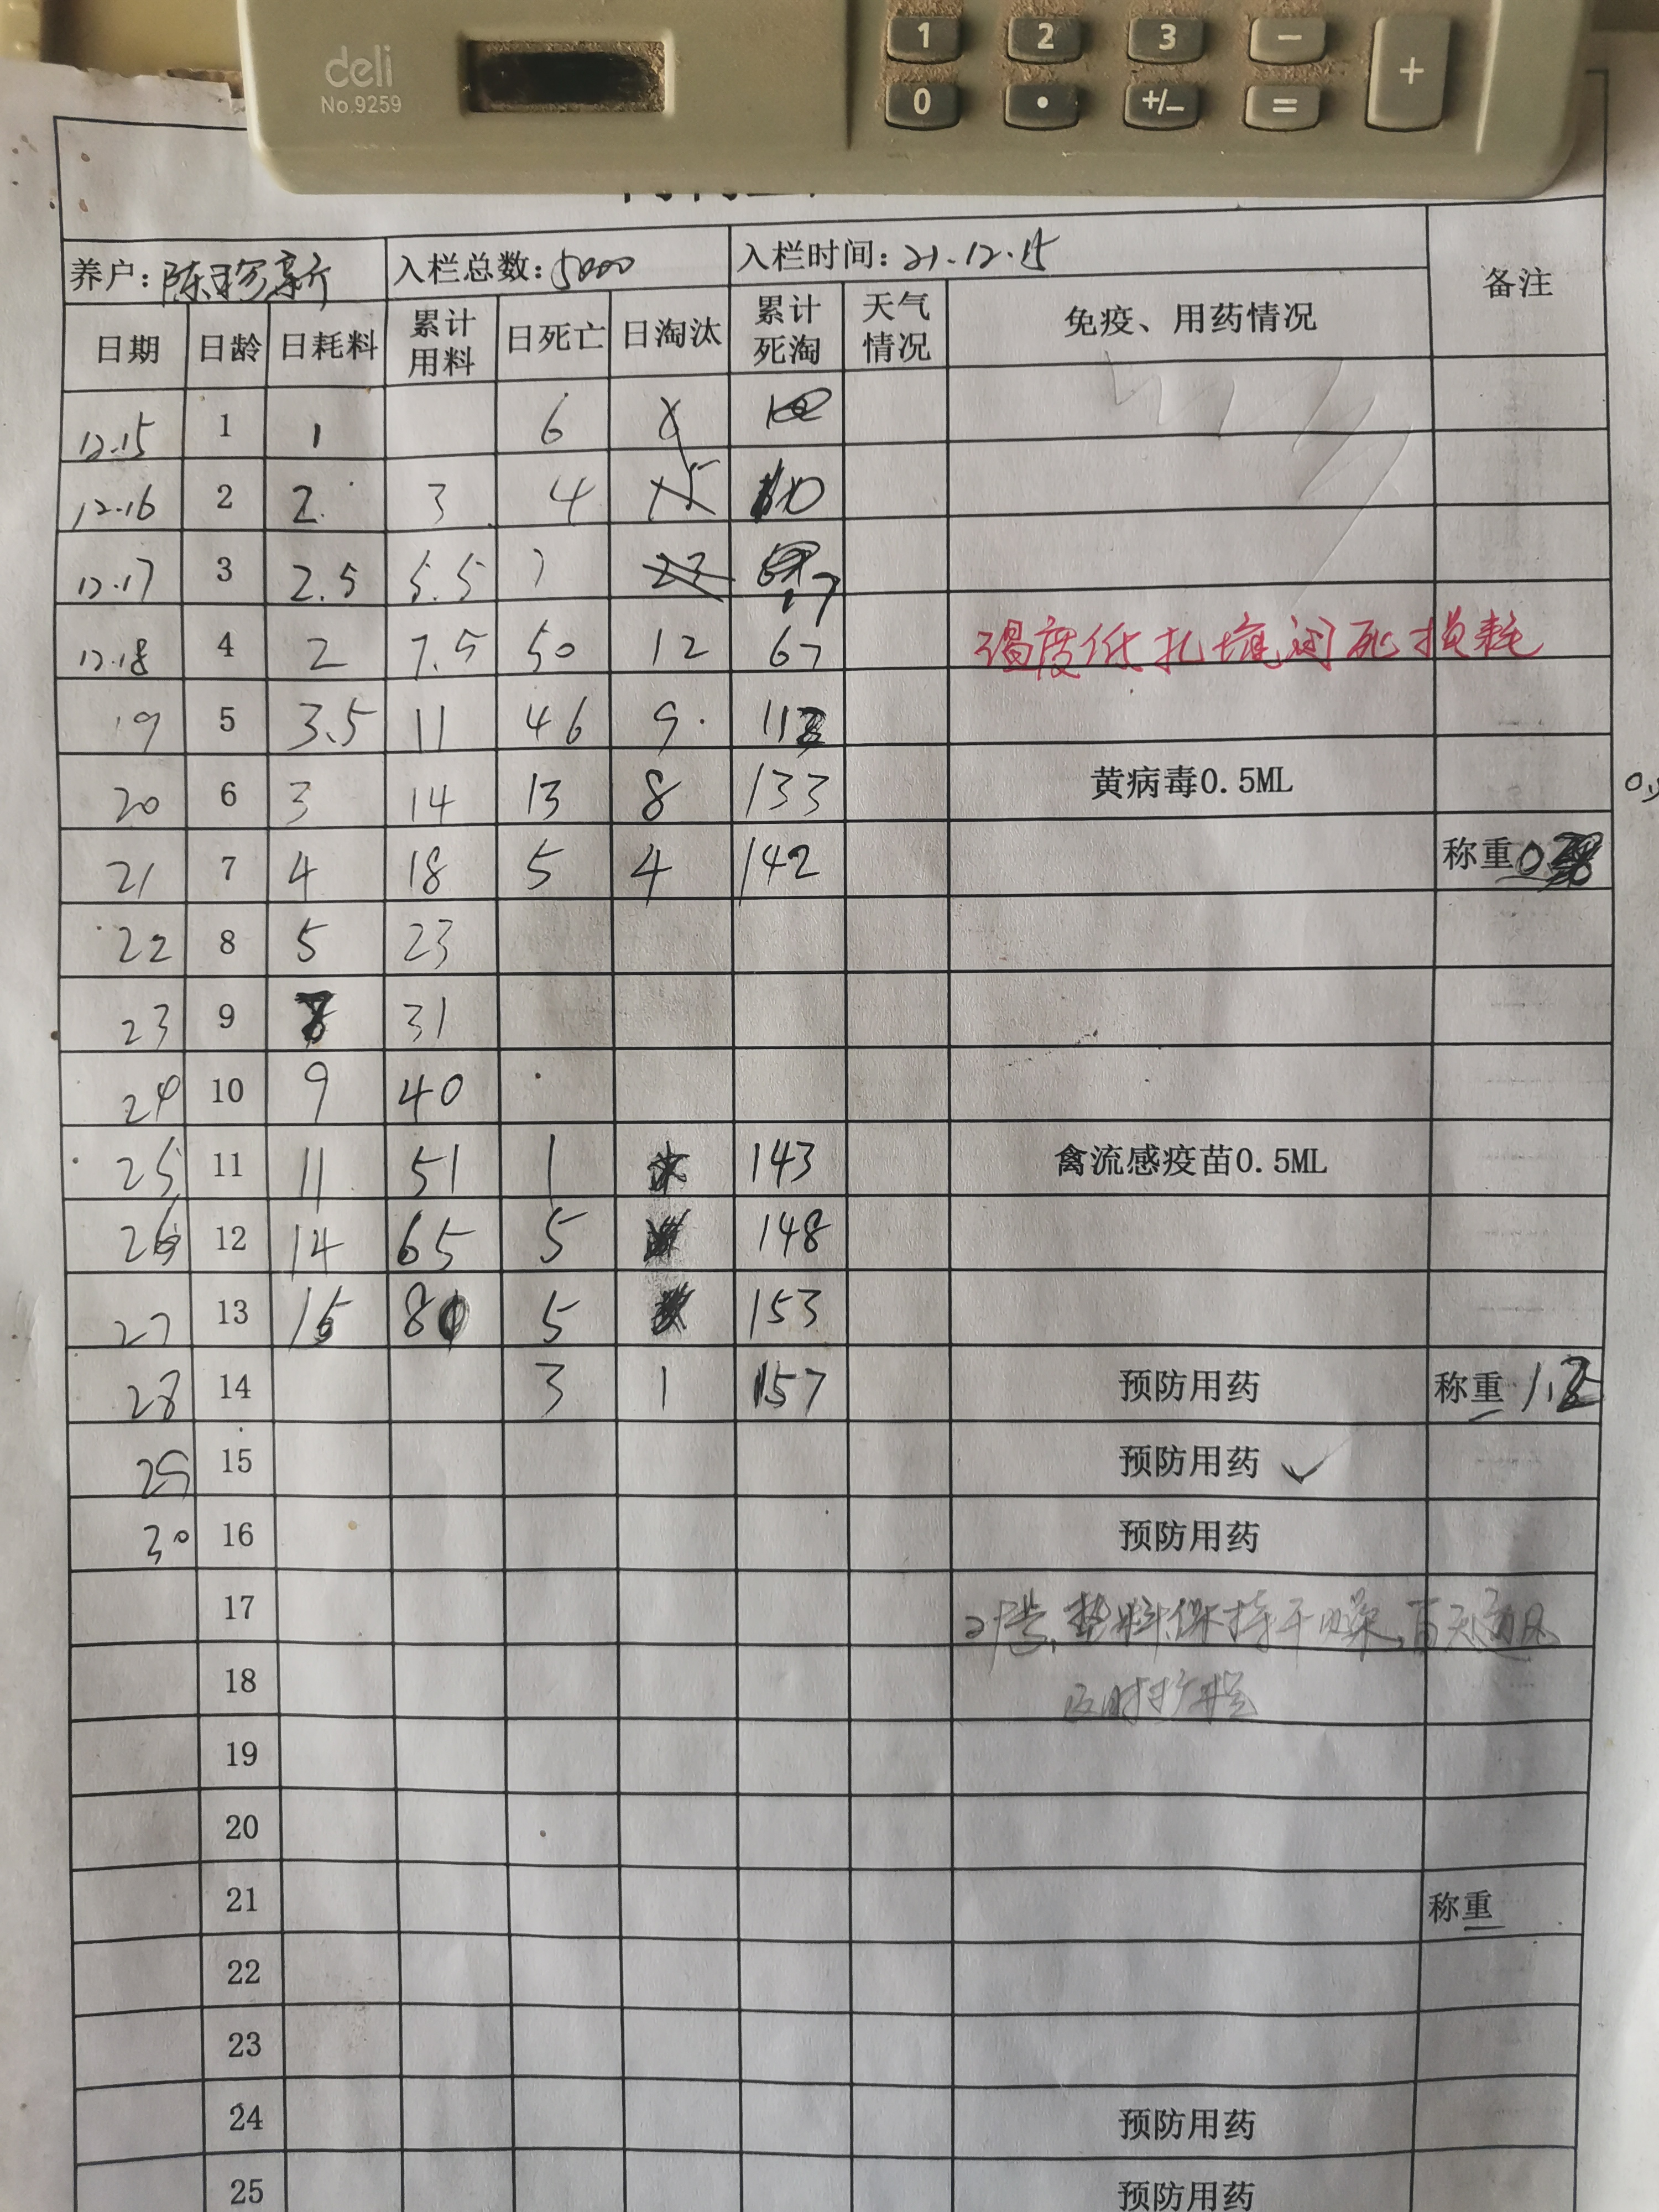 deli
No.9259
1 2 3 − +
0 • +/− =
养户: 陈珍新 入栏总数: 5000 入栏时间: 21.12.15 备注
日期 日龄 日耗料 累计用料 日死亡 日淘汰 累计死淘 天气情况 免疫、用药情况
12.15 1 1 6
12.16 2 2 3 4 10
12.17 3 2.5 5.5 7
12.18 4 2 7.5 50 12 67 温度低扎堆闷死损耗
19 5 3.5 11 46 9
20 6 3 14 13 8 133 黄病毒0.5ML
21 7 4 18 5 4 142 称重
22 8 5 23
23 9 31
24 10 9 40
25 11 11 51 1 143 禽流感疫苗0.5ML
26 12 14 65 5 148
27 13 15 5 153
28 14 3 1 157 预防用药 称重
29 15 预防用药 ✓
30 16 预防用药
17 垫料保持干燥,白天通风
18 及时扩栏
19
20
21 称重
22
23
24 预防用药
25 预防用药